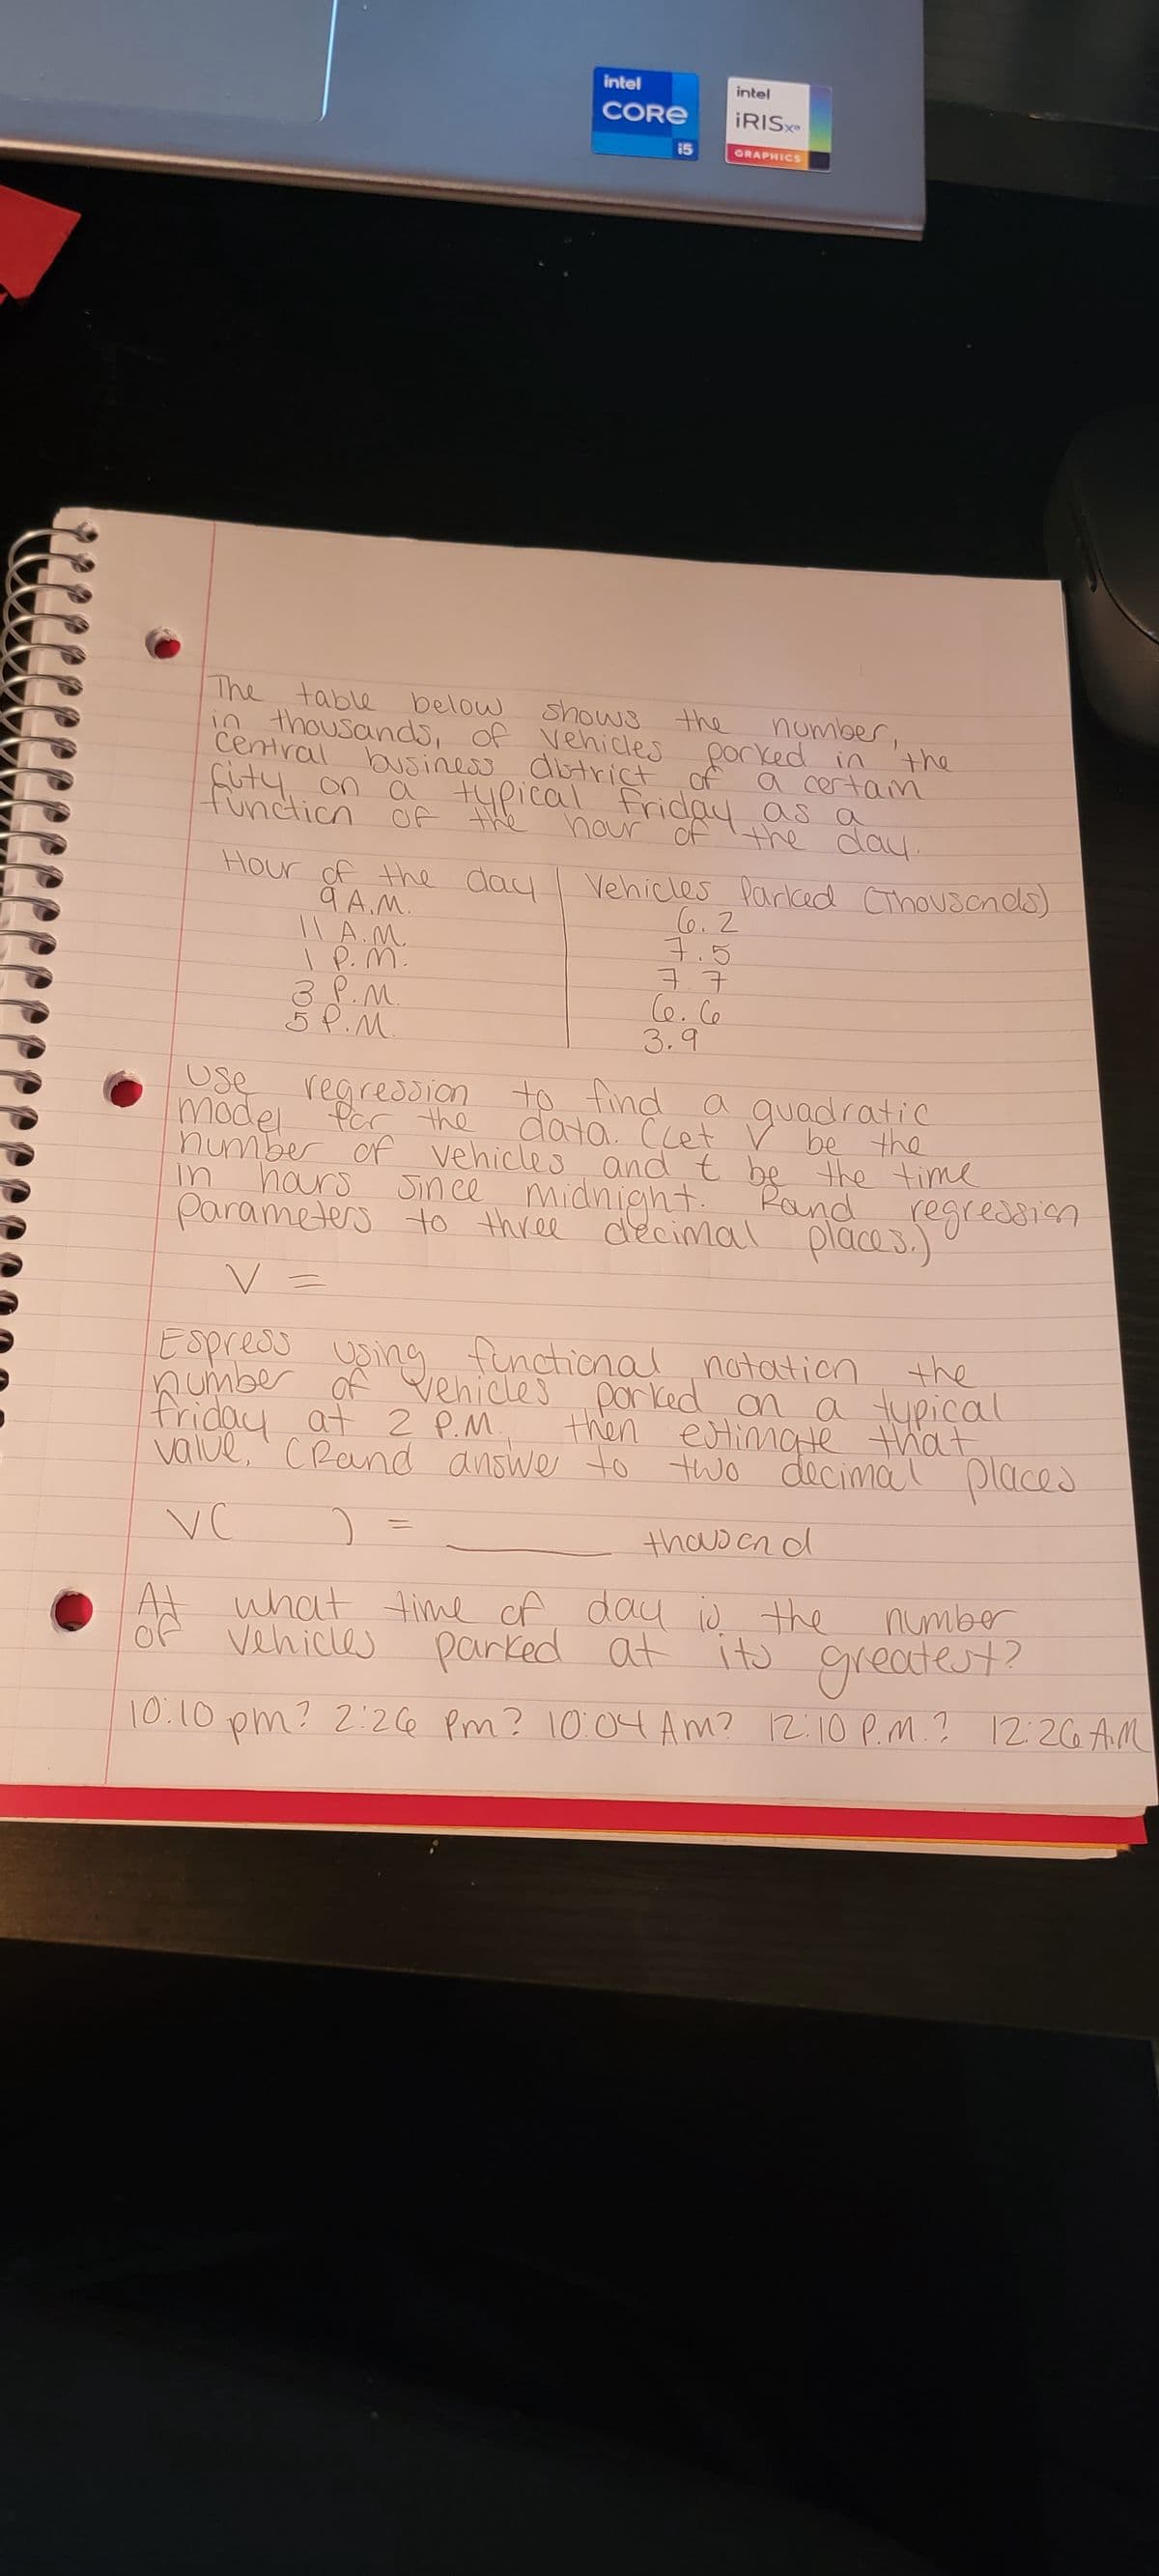 intel
CORe
i5
intel
iRISxe
GRAPHICS
The table below shows the number,
in thousands, of vehicles parked in the
central business district of a certain
city on a typical Friday as a
function of the hour of the day.
Hour of the day Vehicles Parked (Thousands)
9 A.M. 6.2
11 A.M. 7.5
1 P.M. 7.7
3 P.M. 6.6
5 P.M. 3.9
Use regression to find a quadratic
model for the data. (Let V be the
number of vehicles and t be the time
in hours since midnight. Round regression
parameters to three decimal places.)
V =
Espress using functional notation the
number of vehicles parked on a typical
friday at 2 P.M., then estimate that
value. (Round answe to two decimal places
V( ) = ______ thousand
At what time of day is the number
of vehicles parked at its greatest?
10:10 pm? 2:26 pm? 10:04 Am? 12:10 P.M.? 12:26 A.M